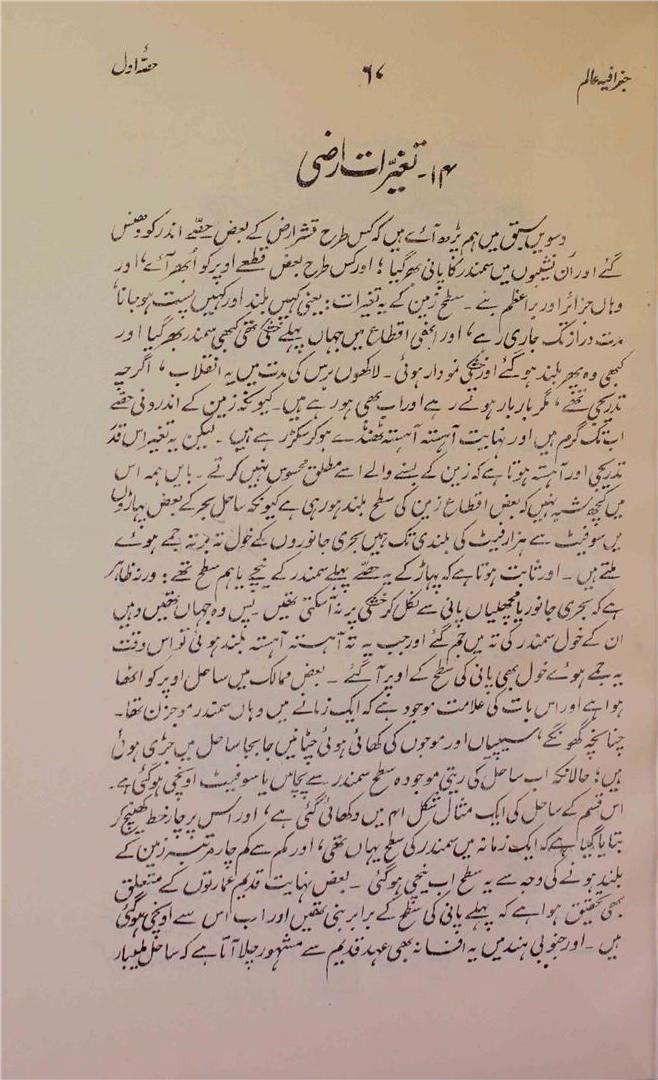 جغرافیہ عالم ۶۷ حصّۂ اول
۱۴۔ تغیّراتِ ارضی
دسویں سبق میں ہم پڑھ آئے ہیں کہ کس طرح قشر ارض کے بعض حصّے اندر کو دھنس
گئے اور اُن نشیبوں میں سمندر کا پانی بھر گیا؛ اور کس طرح بعض قطعے اوپر کو اُبھر آئے، اور
وہاں جزائر اور براعظم بنے۔ سطح زمین کے یہ تغیرات: یعنی کہیں بلند اور کہیں پست ہو جانا،
مدت دراز تک جاری رہے، اور انہی اقطاع میں جہاں پہلے خشکی تھی کبھی سمندر بھر گیا اور
کبھی وہ پھر بلند ہو گئے اور خشکی نمودار ہوئی۔ لاکھوں برس کی مدت میں یہ انقلاب، اگرچہ
تدریجی تھے، مگر بار بار ہوتے رہے اور اب بھی ہو رہے ہیں۔ کیونکہ زمین کے اندرونی حصّے
اب تک گرم ہیں اور نہایت آہستہ آہستہ ٹھنڈے ہو کر سکڑ رہے ہیں۔ لیکن یہ تغیر اس قدر
تدریجی اور آہستہ ہوتا ہے کہ زمین کے بسنے والے اسے مطلق محسوس نہیں کرتے۔ بایں ہمہ اس
میں کچھ شبہ نہیں کہ بعض اقطاع زمین کی سطح بلند ہو رہی ہے کیونکہ ساحل بحر کے بعض پہاڑوں
میں سو فیٹ سے ہزار فیٹ کی بلندی تک ہمیں بحری جانوروں کے خول تہ بر تہ جمے ہوئے
ملتے ہیں۔ اور ثابت ہوتا ہے کہ پہاڑ کے یہ حصّے پہلے سمندر کے نیچے یا ہم سطح تھے: ورنہ ظاہر
ہے کہ بحری جانور یا مچھلیاں پانی سے نکل کر خشکی پر نہ آ سکتی تھیں۔ پس وہ جہاں تھیں وہیں
ان کے خول سمندر کی تہ میں جم گئے اور جب یہ تہ آہستہ آہستہ بلند ہوئی تو اس وقت
یہ جمے ہوئے خول بھی پانی کی سطح کے اوپر آ گئے۔ بعض ممالک میں ساحل اوپر کو اٹھا
ہوا ہے اور اس بات کی علامت موجود ہے کہ ایک زمانے میں وہاں سمندر موجزن تھا۔
چنانچہ گھونگے، سیپیاں اور موجوں کی کھائی ہوئی چٹانیں جابجا ساحل میں جڑی ہوئی
ہیں؛ حالانکہ اب ساحل کی ریتی موجودہ سطح سمندر سے پچاس یا سو فیٹ اونچی ہو گئی ہے۔
اس قسم کے ساحل کی ایک مثال شکل میں دکھائی گئی ہے، اور اس پر چار خط کھینچ کر
بتایا گیا ہے کہ ایک زمانہ میں سمندر کی سطح یہاں تھی، اور کم سے کم چار مرتبہ زمین کے
بلند ہونے کی وجہ سے یہ سطح اب نیچی ہو گئی۔ بعض نہایت قدیم عمارتوں کے متعلق
بھی تحقیق ہوا ہے کہ پہلے پانی کی سطح کے برابر بنی تھیں اور اب اس سے اونچی ہو گئی
ہیں۔ اور جنوبی ہند میں یہ افسانہ بھی عہد قدیم سے مشہور چلا آتا ہے کہ ساحل ملیبار